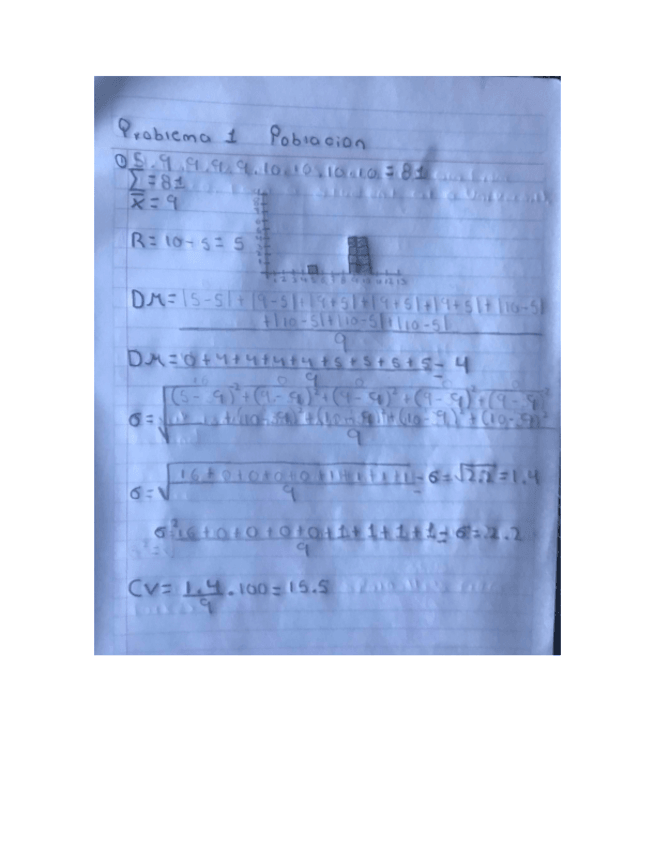 Problema 1 Poblacion
① 5, 9, 9, 9, 9, 10, 10, 10, 10 = 81
Σ = 81
x̄ = 9
R = 10 - 5 = 5
DM = |5-5| + |9-5| + |9+5| + |9+5| + |9+5| + |10-5|
+ |10-5| + |10-5| + |10-5|
9
DM = 0+4+4+4+4+5+5+5+5 = 4
9
σ = √(5-9)² + (9-9)² + (9-9)² + (9-9)² + (9-9)²
+ (10-9)² + (10-9)² + (10-9)² + (10-9)²
9
σ = √16+0+0+0+0+1+1+1+1 = σ = √2.2 = 1.4
9
σ² 16+0+0+0+0+1+1+1+1 = σ² = 2.2
9
CV = 1.4 . 100 = 15.5
9